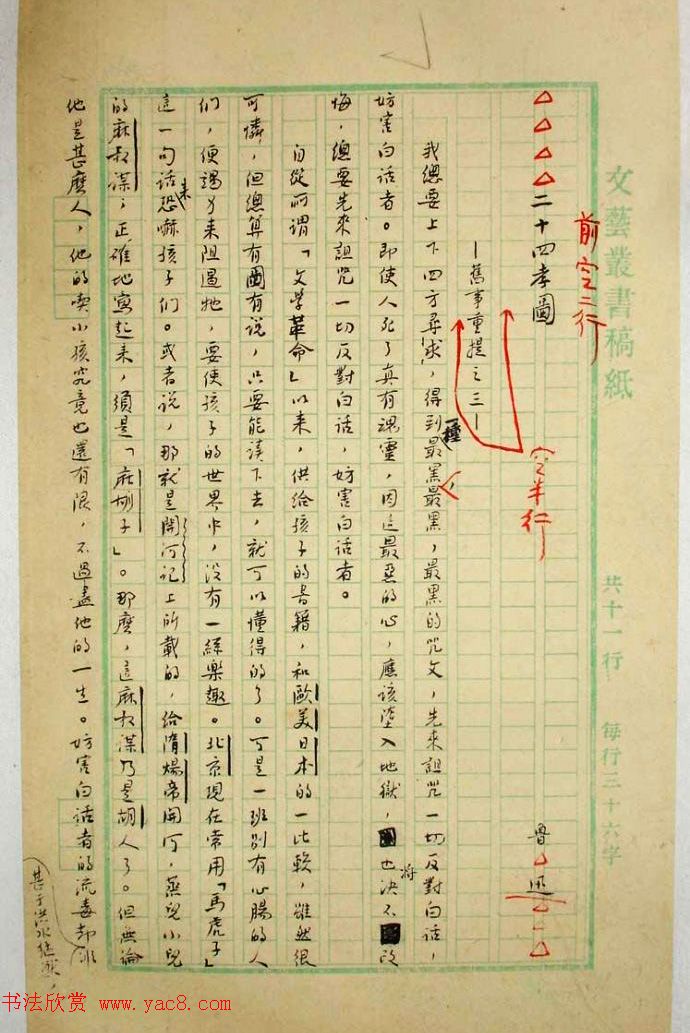 文藝叢書稿紙 共十一行 每行三十六字
前空二行
△△△△二十四孝圖 魯△迅△△△
空半行
—舊事重提之三—
我總要上下四方尋求,得到一種最黑最黑,最黑的咒文,先來詛咒一切反對白話,
妨害白話者。即使人死了真有魂靈,因這最惡的心,應該墮入地獄,也將決不改
悔,總要先來詛咒一切反對白話,妨害白話者。
自從所謂「文學革命」以來,供給孩子的書籍,和歐美日本的一比較,雖然很
可憐,但總算有圖有說,只要能讀下去,就可以懂得的了。可是一班別有心腸的人
們,便竭力來阻遏牠,要使孩子的世界中,沒有一絲樂趣。北京現在常用「馬虎子」
這一句話來恐嚇孩子們。或者說,那就是開河記上所載的,給隋煬帝開河,蒸死小兒
的麻叔謀;正確地寫起來,須是「麻胡子」。那麼,這麻叔謀乃是胡人了。但無論
他是甚麼人,他的喫小孩究竟也還有限,不過盡他的一生。妨害白話者的流毒却
甚于洪水猛獸,
书法欣赏 www.yac8.com